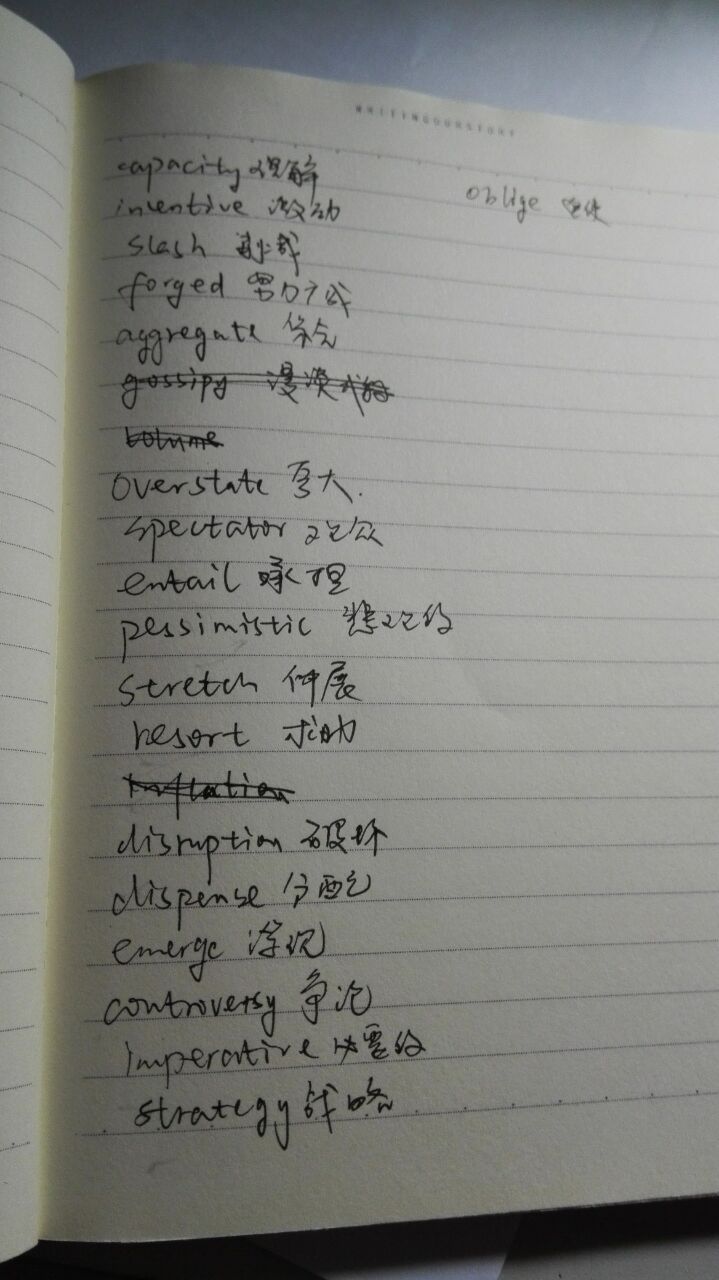 WRITINGOURSTORY
capacity 理解
oblige 迫使
inventive 激动
slash 削减
forged 努力完成
aggregate 集合
gossipy 漫漠
volume
overstate 夸大.
spectator 观众
entail 承担
pessimistic 悲观的
stretch 伸展
resort 求助
Inflation
disruption 破坏
dispense 分配
emerge 浮现
controversy 争论
imperative 必要的
strategy 战略